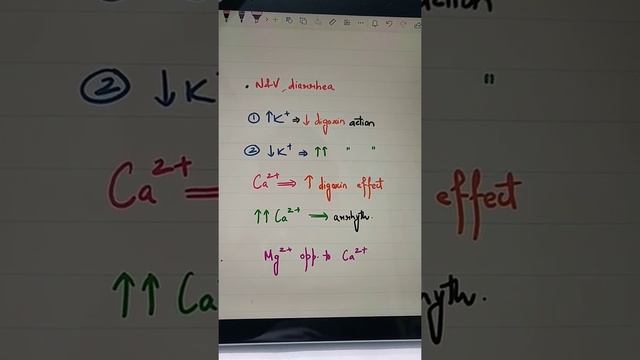 • N&V, diarrhea
① ↑K⁺ ⇒ ↓ digoxin action
② ↓K⁺ ⇒ ↑↑ " "
Ca²⁺ ⟹ ↑ digoxin effect
↑↑ Ca²⁺ ⟶ arrhyth.
Mg²⁺ opp. to Ca²⁺